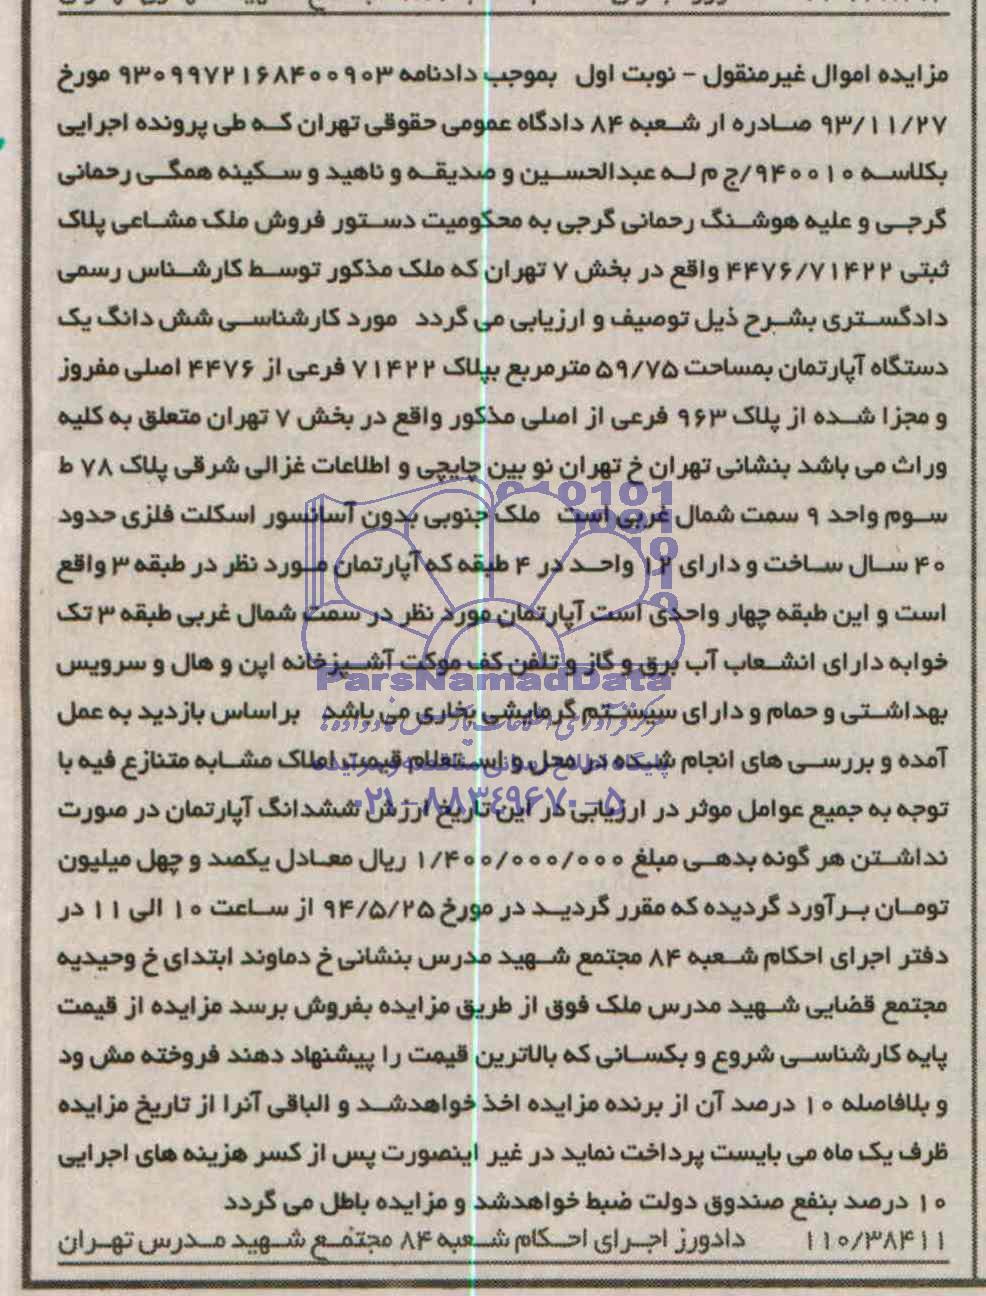 مزایده اموال غیرمنقول - نوبت اول بموجب دادنامه ۹۳۰۹۹۷۲۱۶۸۴۰۰۹۰۳ مورخ
۹۳/۱۱/۲۷ صادره ار شعبه ۸۴ دادگاه عمومی حقوقی تهران که طی پرونده اجرایی
بکلاسه ۹۴۰۰۱۰/ج م له عبدالحسین و صدیقه و ناهید و سکینه همگی رحمانی
گرجی و علیه هوشنگ رحمانی گرجی به محکومیت دستور فروش ملک مشاعی پلاک
ثبتی ۴۴۷۶/۷۱۴۲۲ واقع در بخش ۷ تهران که ملک مذکور توسط کارشناس رسمی
دادگستری بشرح ذیل توصیف و ارزیابی می گردد مورد کارشناسی شش دانگ یک
دستگاه آپارتمان بمساحت ۵۹/۷۵ مترمربع بپلاک ۷۱۴۲۲ فرعی از ۴۴۷۶ اصلی مفروز
و مجزا شده از پلاک ۹۶۳ فرعی از اصلی مذکور واقع در بخش ۷ تهران متعلق به کلیه
وراث می باشد بنشانی تهران خ تهران نو بین چایچی و اطلاعات غزالی شرقی پلاک ۷۸ ط
سوم واحد ۹ سمت شمال غربی است ملک جنوبی بدون آسانسور اسکلت فلزی حدود
۴۰ سال ساخت و دارای ۱۲ واحد در ۴ طبقه که آپارتمان مورد نظر در طبقه ۳ واقع
است و این طبقه چهار واحدی است آپارتمان مورد نظر در سمت شمال غربی طبقه ۳ تک
خوابه دارای انشعاب آب برق و گاز و تلفن کف موکت آشپزخانه اپن و هال و سرویس
ParsNamadData
بهداشتی و حمام و دارای سیستم گرمایشی بخاری می باشد براساس بازدید به عمل
آمده و بررسی های انجام شده در محل و استعلام قیمت املاک مشابه متنازع فیه با
توجه به جمیع عوامل موثر در ارزیابی در این تاریخ ارزش ششدانگ آپارتمان در صورت
۰۲۱-۸۸۳۴۹۶۷۰-۵
نداشتن هر گونه بدهی مبلغ ۱/۴۰۰/۰۰۰/۰۰۰ ریال معادل یکصد و چهل میلیون
تومان برآورد گردیده که مقرر گردید در مورخ ۹۴/۵/۲۵ از ساعت ۱۰ الی ۱۱ در
دفتر اجرای احکام شعبه ۸۴ مجتمع شهید مدرس بنشانی خ دماوند ابتدای خ وحیدیه
مجتمع قضایی شهید مدرس ملک فوق از طریق مزایده بفروش برسد مزایده از قیمت
پایه کارشناسی شروع و بکسانی که بالاترین قیمت را پیشنهاد دهند فروخته مش ود
و بلافاصله ۱۰ درصد آن از برنده مزایده اخذ خواهدشد و الباقی آنرا از تاریخ مزایده
ظرف یک ماه می بایست پرداخت نماید در غیر اینصورت پس از کسر هزینه های اجرایی
۱۰ درصد بنفع صندوق دولت ضبط خواهدشد و مزایده باطل می گردد
۱۱۰/۳۸۴۱۱ دادورز اجرای احکام شعبه ۸۴ مجتمع شهید مدرس تهران